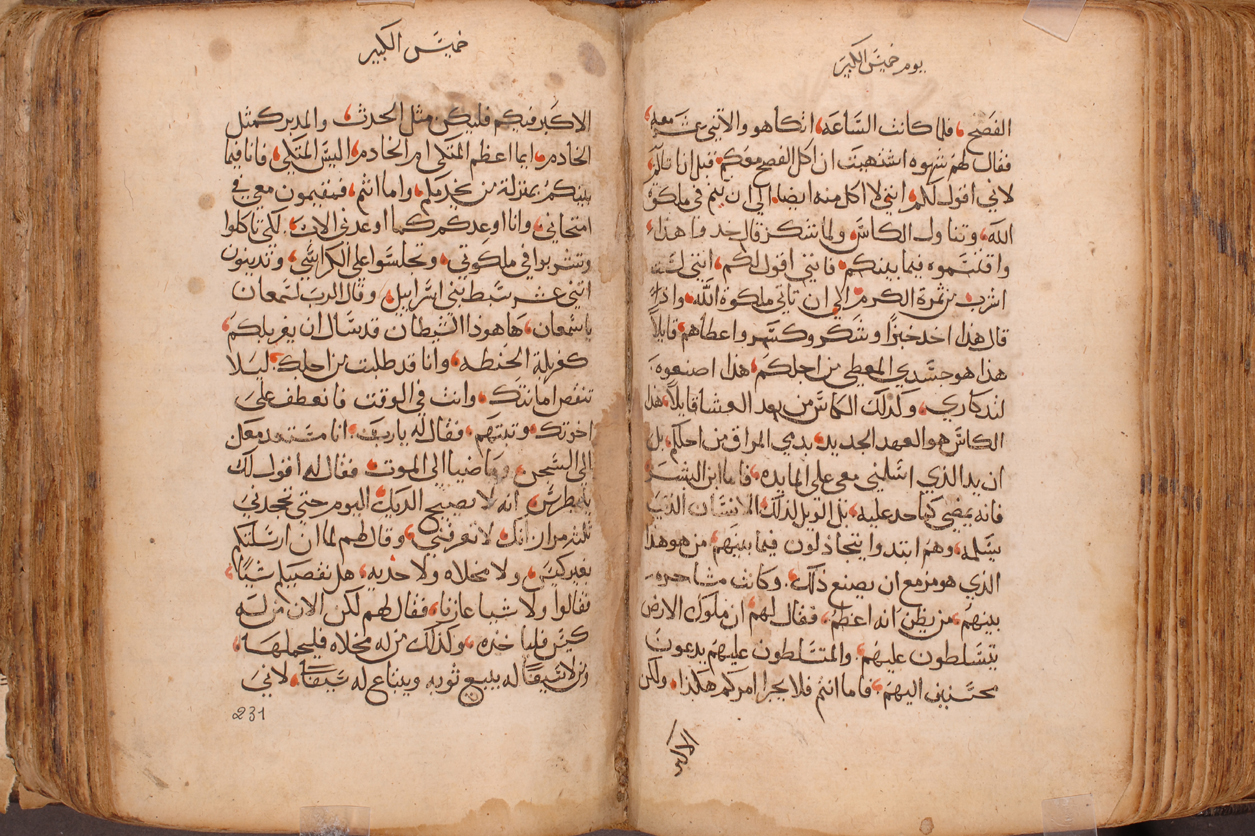 يوم خميس الكبير
الفصح، فلما كانت الساعه، اتكا هو والاثني عشر معه،
فقال لهم شهوه اشتهيت ان اكل الفصح معكم، قبل ان اتالم،
لاني اقول لكم، انني لا اكل منه ايضا، الي ان يتم في ملكوة
الله، وتناول الكاس، ولما شكر قال خدوا هذا،
واقتسموه فيما بينكم، فانني اقول لكم، انني لست
اشرب من ثمرة الكرم، الي ان تاتي ملكوة الله،
قال هذا اخد خبزا وشكر وكسر واعطاهم، قايلا
هذا هو جسدي المعطي من اجلكم، هذا اصنعوه
لتدكاري، وكذلك الكاس من بعد العشا قايلا، هذا
الكاس هو العهد الجديد، بدمي المراق من اجلكم، بل
ان يد الذي اسلمني معي علي المايده، فاما ابن البشر
فانه يمضي كما حد عليه، بل الويل لذلك الانسان الذي
يسلمه، وهم ابتدوا يتجادلون فيما بينهم، من هو هذا
الذي هو مزمع ان يصنع ذلك، وكانت مشاجره
بينهم، من يظن انه اعظم، فقال لهم، ان ملوك الارض
يتسلطون عليهم، والمتسلطون عليهم يدعون
محسنين اليهم، فاما انتم فلا يجرا امركم هكذا، ولكن
الاكبر
خميس الكبير
الاكبر فيكم فليكن مثل الحدث، والمدبر كمثل
الخادم، ايما اعظم المتكي ام الخادم، اليس المتكي، فانا فيما
بينكم بمنزلة من يخدمكم، واما انتم، فمقيمون معي في
امتحاني، وانا اوعدكم كما اوعدني الاب، لكي تاكلوا
وتشربوا في ملكوتي، وتجلسوا علي الكراسي، وتدينون
اثني عشر سبط بني اسراييل، وقال الرب لسمعان
يا سمعان، ها هوذا الشيطان قد سال ان يغربلكم،
كغربلة الحنطه، وانا قد طلبت من اجلك، ليلا
تنقص امانتك، وانت في الوقت فانعطف علي
اخوتك، وثبتهم، فقال له يارب، انا مستعد معك
الي السجن، وماضيا الي الموت، فقال له اقول لك
يا بطرس، انه لا يصيح الديك اليوم حتي تجحدني
ثلثة مرار انك لا تعرفني، وقال لهم لما ان ارسلتكم
بغير كيس، ولا مخلاه ولا حديه، هل نقصكم شيا،
فقالوا ولا شيا عازنا، فقال لهم لكن الان من له
كيس فلياخذه، وكذلك من له مخلاه فليحملها،
ومن لا سيفا له يبيع ثوبه ويبتاع له سيفا، لاني
231